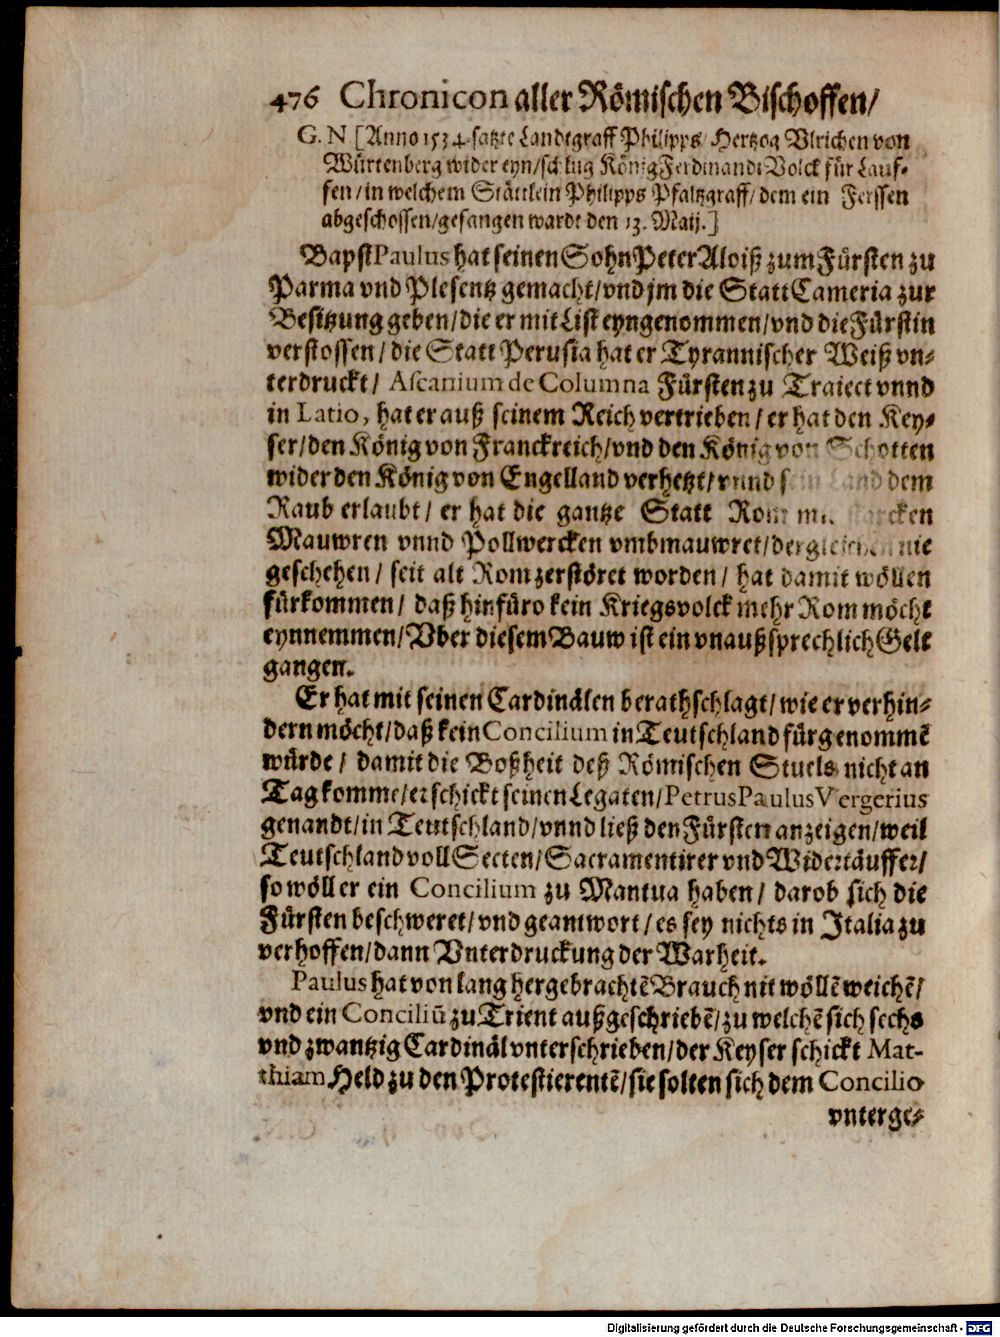 476 Chronicon aller Römischen Bischoffen/
G. N [Anno 1534. satzte Landtgraff Philipps/ Hertzog Vlrichen von
Würtenberg wider eyn/schlug König Ferdinandi Volck für Lauf-
fen/in welchem Stättlein Philipps Pfaltzgraff/dem ein Ferssen
abgeschossen/gefangen wardt den 13. Maij.]
Bapst Paulus hat seinen Sohn Peter Aloiß zum Fürsten zu
Parma vnd Plesentz gemacht/vnd jm die Statt Cameria zur
Besitzung geben/die er mit List eyngenommen/vnd die Fürstin
verstossen/die Statt Perusia hat er Tyrannischer Weiß vn-
terdruckt/ Ascanium de Columna Fürsten zu Traiect vnnd
in Latio, hat er auß seinem Reich vertrieben/er hat den Key-
ser/den König von Franckreich/vnd den König von Schotten
wider den König von Engelland verhetzt/vnnd dem
Raub erlaubt/ er hat die gantze Statt Rom
Mauwren vnnd Pollwercken vmbmauwret/dergleichen nie
geschehen/ seit alt Rom zerstöret worden/ hat damit wöllen
fürkommen/ daß hinfüro kein Kriegsvolck mehr Rom möcht
eynnemmen/Vber diesem Bauw ist ein vnaußsprechlich Gelt
gangen.
Er hat mit seinen Cardinälen berathschlagt/wie er verhin-
dern möcht/daß kein Concilium in Teutschland fürgenommē
würde/ damit die Boßheit deß Römischen Stuels nicht an
Tag komme/er schickt seinen Legaten/Petrus Paulus Vergerius
genandt/in Teutschland/vnnd ließ den Fürsten anzeigen/weil
Teutschland voll Secten/Sacramentirer vnd Widertäuffer/
so wöll er ein Concilium zu Mantua haben/ darob sich die
Fürsten beschweret/vnd geantwort/es sey nichts in Italia zu
verhoffen/dann Vnterdruckung der Warheit.
Paulus hat von lang hergebrachtē Brauch nit wöllē weichē/
vnd ein Conciliū zu Trient außgeschriebē/zu welchē sich sechs
vnd zwantzig Cardinäl vnterschrieben/der Keyser schickt Mat-
thiam Held zu den Protestierentē/sie solten sich dem Concilio
vnterge-
Digitalisierung gefördert durch die Deutsche Forschungsgemeinschaft - DFG